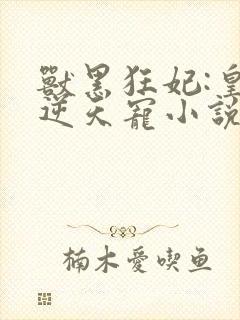 獸黑狂妃:皇
逆天寵小說
楠木愛喫鱼